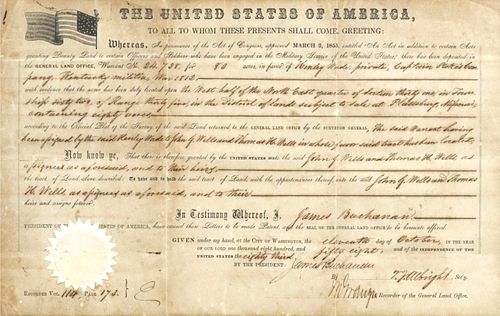 THE UNITED STATES OF AMERICA,
TO ALL TO WHOM THESE PRESENTS SHALL COME, GREETING:
Whereas, In pursuance of the Act of Congress, approved MARCH 3, 1855, entitled An Act in addition to certain Acts
granting Bounty Land to certain Officers and Soldiers who have been engaged in the Military Service of the United States, there has been deposited
in the GENERAL LAND OFFICE, Warrant No. for 80 acres, in favor of Henly Wade, private, Captain
pany, Kentucky militia War 1812
with evidence that the same has been duly located upon the West half of the North East quarter of Section thirty one in Town
ship sixty two of Range thirty five, in the District of Lands subject to sale at Plattsburg, Missouri
containing eighty acres
according to the Official Plat of the Survey of the said Land returned to the GENERAL LAND OFFICE by the SURVEYOR GENERAL, the said Warrant having
been assigned by the said Henly Wade to John G. Wells and Thomas H. Wells in whose favor said tract has been located
Now know ye, That there is therefore granted by the UNITED STATES unto the said John G. Wells and Thomas H. Wells as
assignees as aforesaid, and to their heirs
the tract of Land above described: To have and to hold the said tract of Land, with the appurtenances thereof, unto the said John G. Wells and Thomas
H. Wells as assignees as aforesaid, and to their
heirs and assigns forever.
In Testimony Whereof, I, James Buchanan
PRESIDENT OF THE UNITED STATES OF AMERICA, have caused these Letters to be made Patent, and the SEAL OF THE GENERAL LAND OFFICE to be hereunto affixed.
GIVEN under my hand, at the CITY OF WASHINGTON, the eleventh day of October, IN THE YEAR
OF OUR LORD one thousand eight hundred and fifty eight, and of the INDEPENDENCE OF THE
UNITED STATES the eighty third
BY THE PRESIDENT: James Buchanan
By T.J. Albright Sec'y.
Recorder of the General Land Office.
RECORDED VOL. 114 PAGE 173